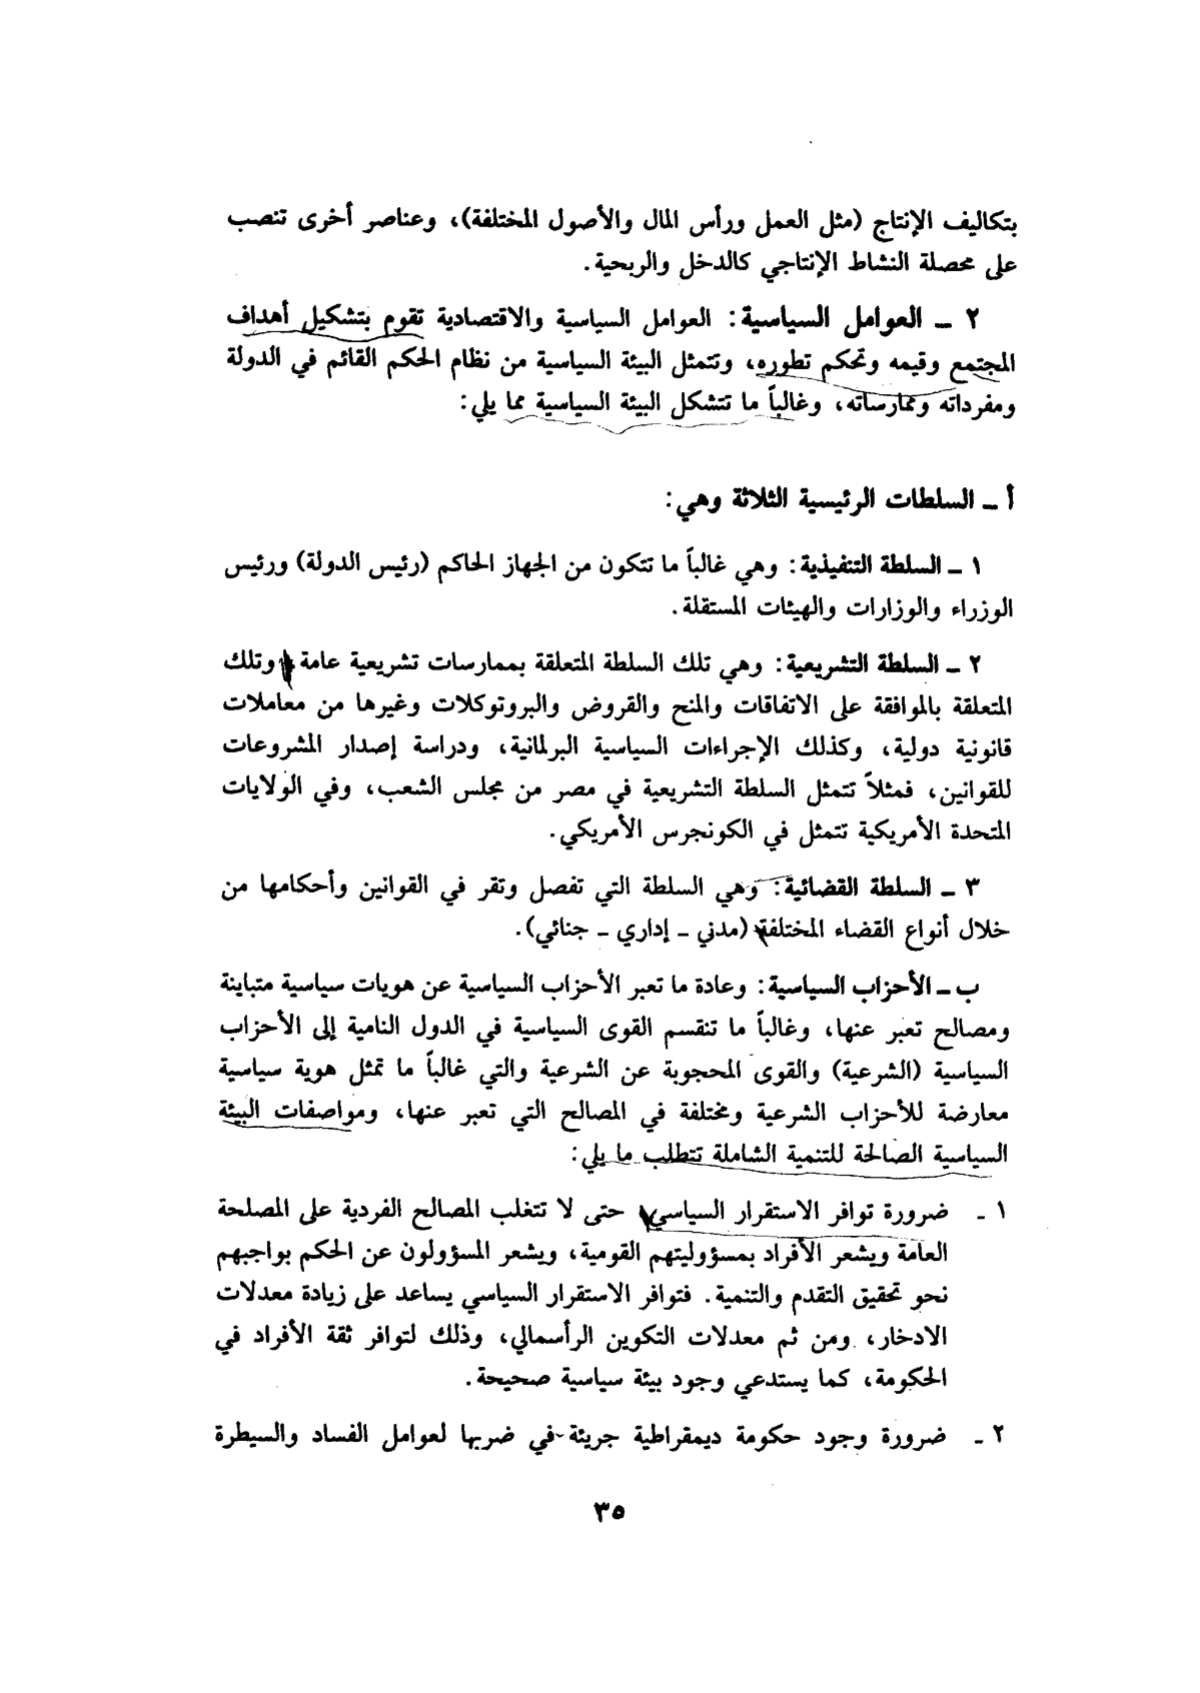 بتكاليف الإنتاج (مثل العمل ورأس المال والأصول المختلفة)، وعناصر أخرى تنصب
على محصلة النشاط الإنتاجي كالدخل والربحية.
٢ ـ العوامل السياسية: العوامل السياسية والاقتصادية تقوم بتشكيل أهداف
المجتمع وقيمه وتحكم تطوره، وتتمثل البيئة السياسية من نظام الحكم القائم في الدولة
ومفرداته وممارساته، وغالباً ما تتشكل البيئة السياسية مما يلي:
أ ـ السلطات الرئيسية الثلاثة وهي:
١ ـ السلطة التنفيذية: وهي غالباً ما تتكون من الجهاز الحاكم (رئيس الدولة) ورئيس
الوزراء والوزارات والهيئات المستقلة.
٢ ـ السلطة التشريعية: وهي تلك السلطة المتعلقة بممارسات تشريعية عامة وتلك
المتعلقة بالموافقة على الاتفاقات والمنح والقروض والبروتوكلات وغيرها من معاملات
قانونية دولية، وكذلك الإجراءات السياسية البرلمانية، ودراسة إصدار المشروعات
للقوانين، فمثلاً تتمثل السلطة التشريعية في مصر من مجلس الشعب، وفي الولايات
المتحدة الأمريكية تتمثل في الكونجرس الأمريكي.
٣ ـ السلطة القضائية: وهي السلطة التي تفصل وتقر في القوانين وأحكامها من
خلال أنواع القضاء المختلفة (مدني ـ إداري ـ جنائي).
ب ـ الأحزاب السياسية: وعادة ما تعبر الأحزاب السياسية عن هويات سياسية متباينة
ومصالح تعبر عنها، وغالباً ما تنقسم القوى السياسية في الدول النامية إلى الأحزاب
السياسية (الشرعية) والقوى المحجوبة عن الشرعية والتي غالباً ما تمثل هوية سياسية
معارضة للأحزاب الشرعية ومختلفة في المصالح التي تعبر عنها، ومواصفات البيئة
السياسية الصالحة للتنمية الشاملة تتطلب ما يلي:
١ ـ ضرورة توافر الاستقرار السياسي حتى لا تتغلب المصالح الفردية على المصلحة
العامة ويشعر الأفراد بمسؤوليتهم القومية، ويشعر المسؤولون عن الحكم بواجبهم
نحو تحقيق التقدم والتنمية. فتوافر الاستقرار السياسي يساعد على زيادة معدلات
الادخار، ومن ثم معدلات التكوين الرأسمالي، وذلك لتوافر ثقة الأفراد في
الحكومة، كما يستدعي وجود بيئة سياسية صحيحة.
٢ ـ ضرورة وجود حكومة ديمقراطية جريئة في ضربها لعوامل الفساد والسيطرة
٣٥